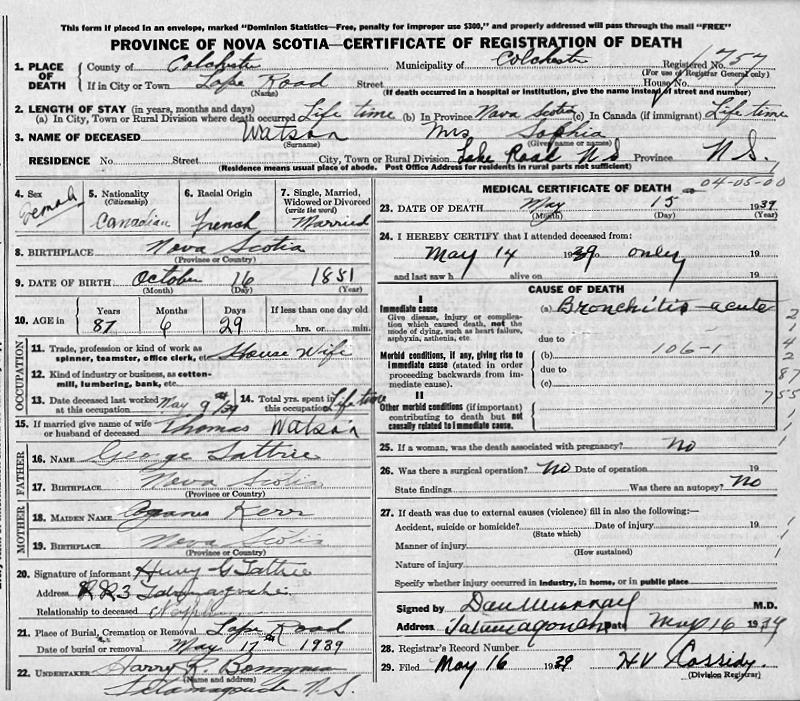 This form if placed in an envelope, marked "Dominion Statistics—Free, penalty for improper use $300," and properly addressed will pass through the mail "FREE"
PROVINCE OF NOVA SCOTIA—CERTIFICATE OF REGISTRATION OF DEATH
1. PLACE OF DEATH County of Colchester Municipality of Colchester Registered No. 757
(For use of Registrar General only)
If in City or Town Lake Road Street House No.
(Name) (If death occurred in a hospital or institution, give the name instead of street and number)
2. LENGTH OF STAY (in years, months and days)
(a) In City, Town or Rural Division where death occurred Life time (b) In Province Nova Scotia (c) In Canada (if immigrant) Life time
3. NAME OF DECEASED Watson Mrs Sophia
(Surname) (Given name or names)
RESIDENCE No. Street City, Town or Rural Division Lake Road N S Province N.S.
(Residence means usual place of abode. Post Office Address for residents in rural parts not sufficient)
4. Sex Female
5. Nationality (Citizenship) Canadian
6. Racial Origin French
7. Single, Married, Widowed or Divorced (write the word) Married
8. BIRTHPLACE Nova Scotia
(Province or Country)
9. DATE OF BIRTH October 16 1851
(Month) (Day) (Year)
10. AGE in Years Months Days If less than one day old
87 6 29 hrs. or min.
OCCUPATION
11. Trade, profession or kind of work as spinner, teamster, office clerk, etc. House Wife
12. Kind of industry or business, as cotton-mill, lumbering, bank, etc.
13. Date deceased last worked at this occupation May 9th/39
14. Total yrs. spent in this occupation Life time
15. If married give name of wife or husband of deceased Thomas Watson
FATHER
16. NAME George Tattrie
17. BIRTHPLACE Nova Scotia
(Province or Country)
MOTHER
18. MAIDEN NAME Kerr
19. BIRTHPLACE Nova Scotia
(Province or Country)
20. Signature of informant Henry G Tattrie
Address R R 3 Tatamagouche
Relationship to deceased Nephew
21. Place of Burial, Cremation or Removal Lake Road
Date of burial or removal May 17th 1939
22. UNDERTAKER Harry R.
(Name and address)
Tatamagouche N.S.
MEDICAL CERTIFICATE OF DEATH 04-05-00
23. DATE OF DEATH May 15 1939
(Month) (Day) (Year)
24. I HEREBY CERTIFY that I attended deceased from:
May 14 1939 to only 19
and last saw h alive on 19
CAUSE OF DEATH
I
Immediate cause (a) Bronchitis acute
Give disease, injury or complication which caused death, not the mode of dying, such as heart failure, asphyxia, asthenia, etc.
due to
Morbid conditions, if any, giving rise to immediate cause (stated in order proceeding backwards from immediate cause). (b) 106-1
due to
(c)
II
Other morbid conditions (if important) contributing to death but not causally related to immediate cause.
2
1
4
2
87
755
1
25. If a woman, was the death associated with pregnancy? No
26. Was there a surgical operation? No Date of operation 19
State findings Was there an autopsy? No
27. If death was due to external causes (violence) fill in also the following:—
Accident, suicide or homicide? Date of injury 19
(State which)
Manner of injury
(How sustained)
Nature of injury
Specify whether injury occurred in industry, in home, or in public place
Signed by Dan Murray M.D.
Address Tatamagouche Date May 16 1939
28. Registrar's Record Number
29. Filed May 16 1939 H V Cassidy.
(Division Registrar)